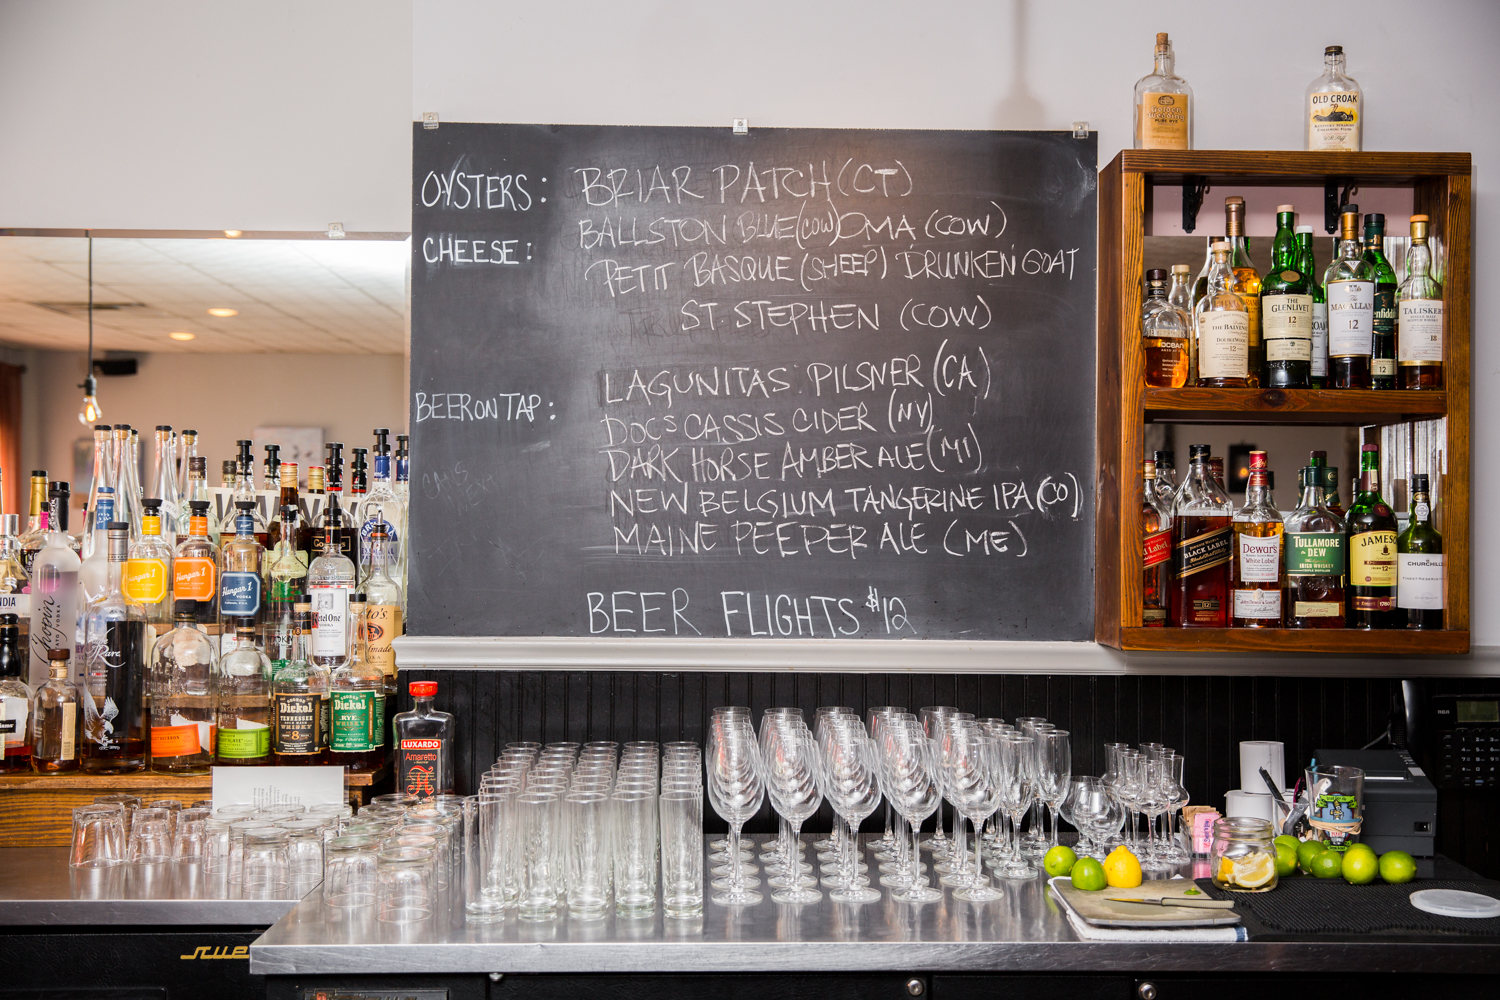 OYSTERS: BRIAR PATCH (CT)
CHEESE: BALLSTON BLUE (COW) OMA (COW)
PETIT BASQUE (SHEEP) DRUNKEN GOAT
ST STEPHEN (COW)
BEER ON TAP: LAGUNITAS PILSNER (CA)
DOCS CASSIS CIDER (NY)
DARK HORSE AMBER ALE (MI)
NEW BELGIUM TANGERINE IPA (CO)
MAINE PEEPER ALE (ME)
BEER FLIGHTS $12
OLD CROAK
THE GLENLIVET
12
THE BALVENIE
DOUBLEWOOD
12
The MACALLAN
12
12
TALISKER
Label
BLACK LABEL
12
Dewar's
White Label
TULLAMORE
DEW
IRISH WHISKEY
JAMES
12
1780
CHURCHILL
Hangar 1
VODKA
Hangar 1
VODKA
Hangar 1
Chopin
Rare
Ketel One
Dickel
TENNESSEE
WHISKY
8
Dickel
RYE
WHISKY
LUXARDO
Amaretto
RCA